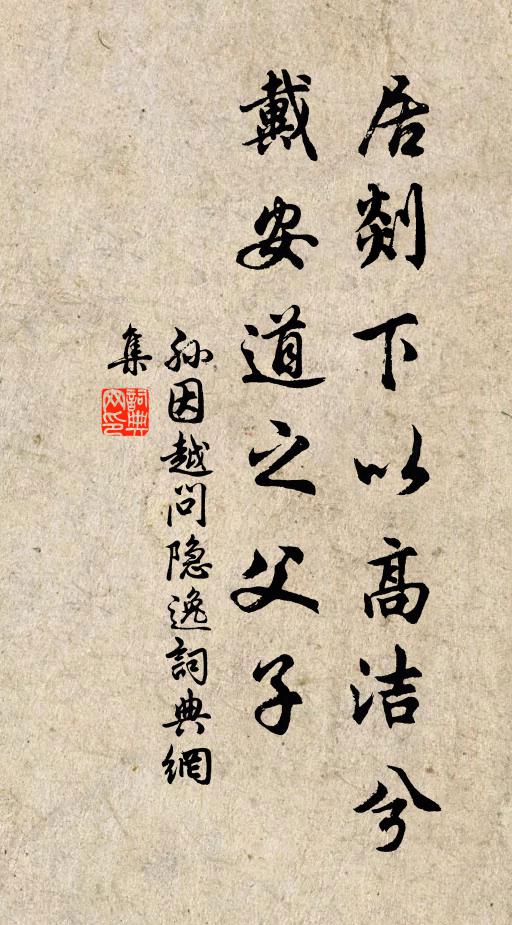 居剡下以高洁兮
戴安道之父子
孙因越问隐逸詞典網
集
詞典
網印